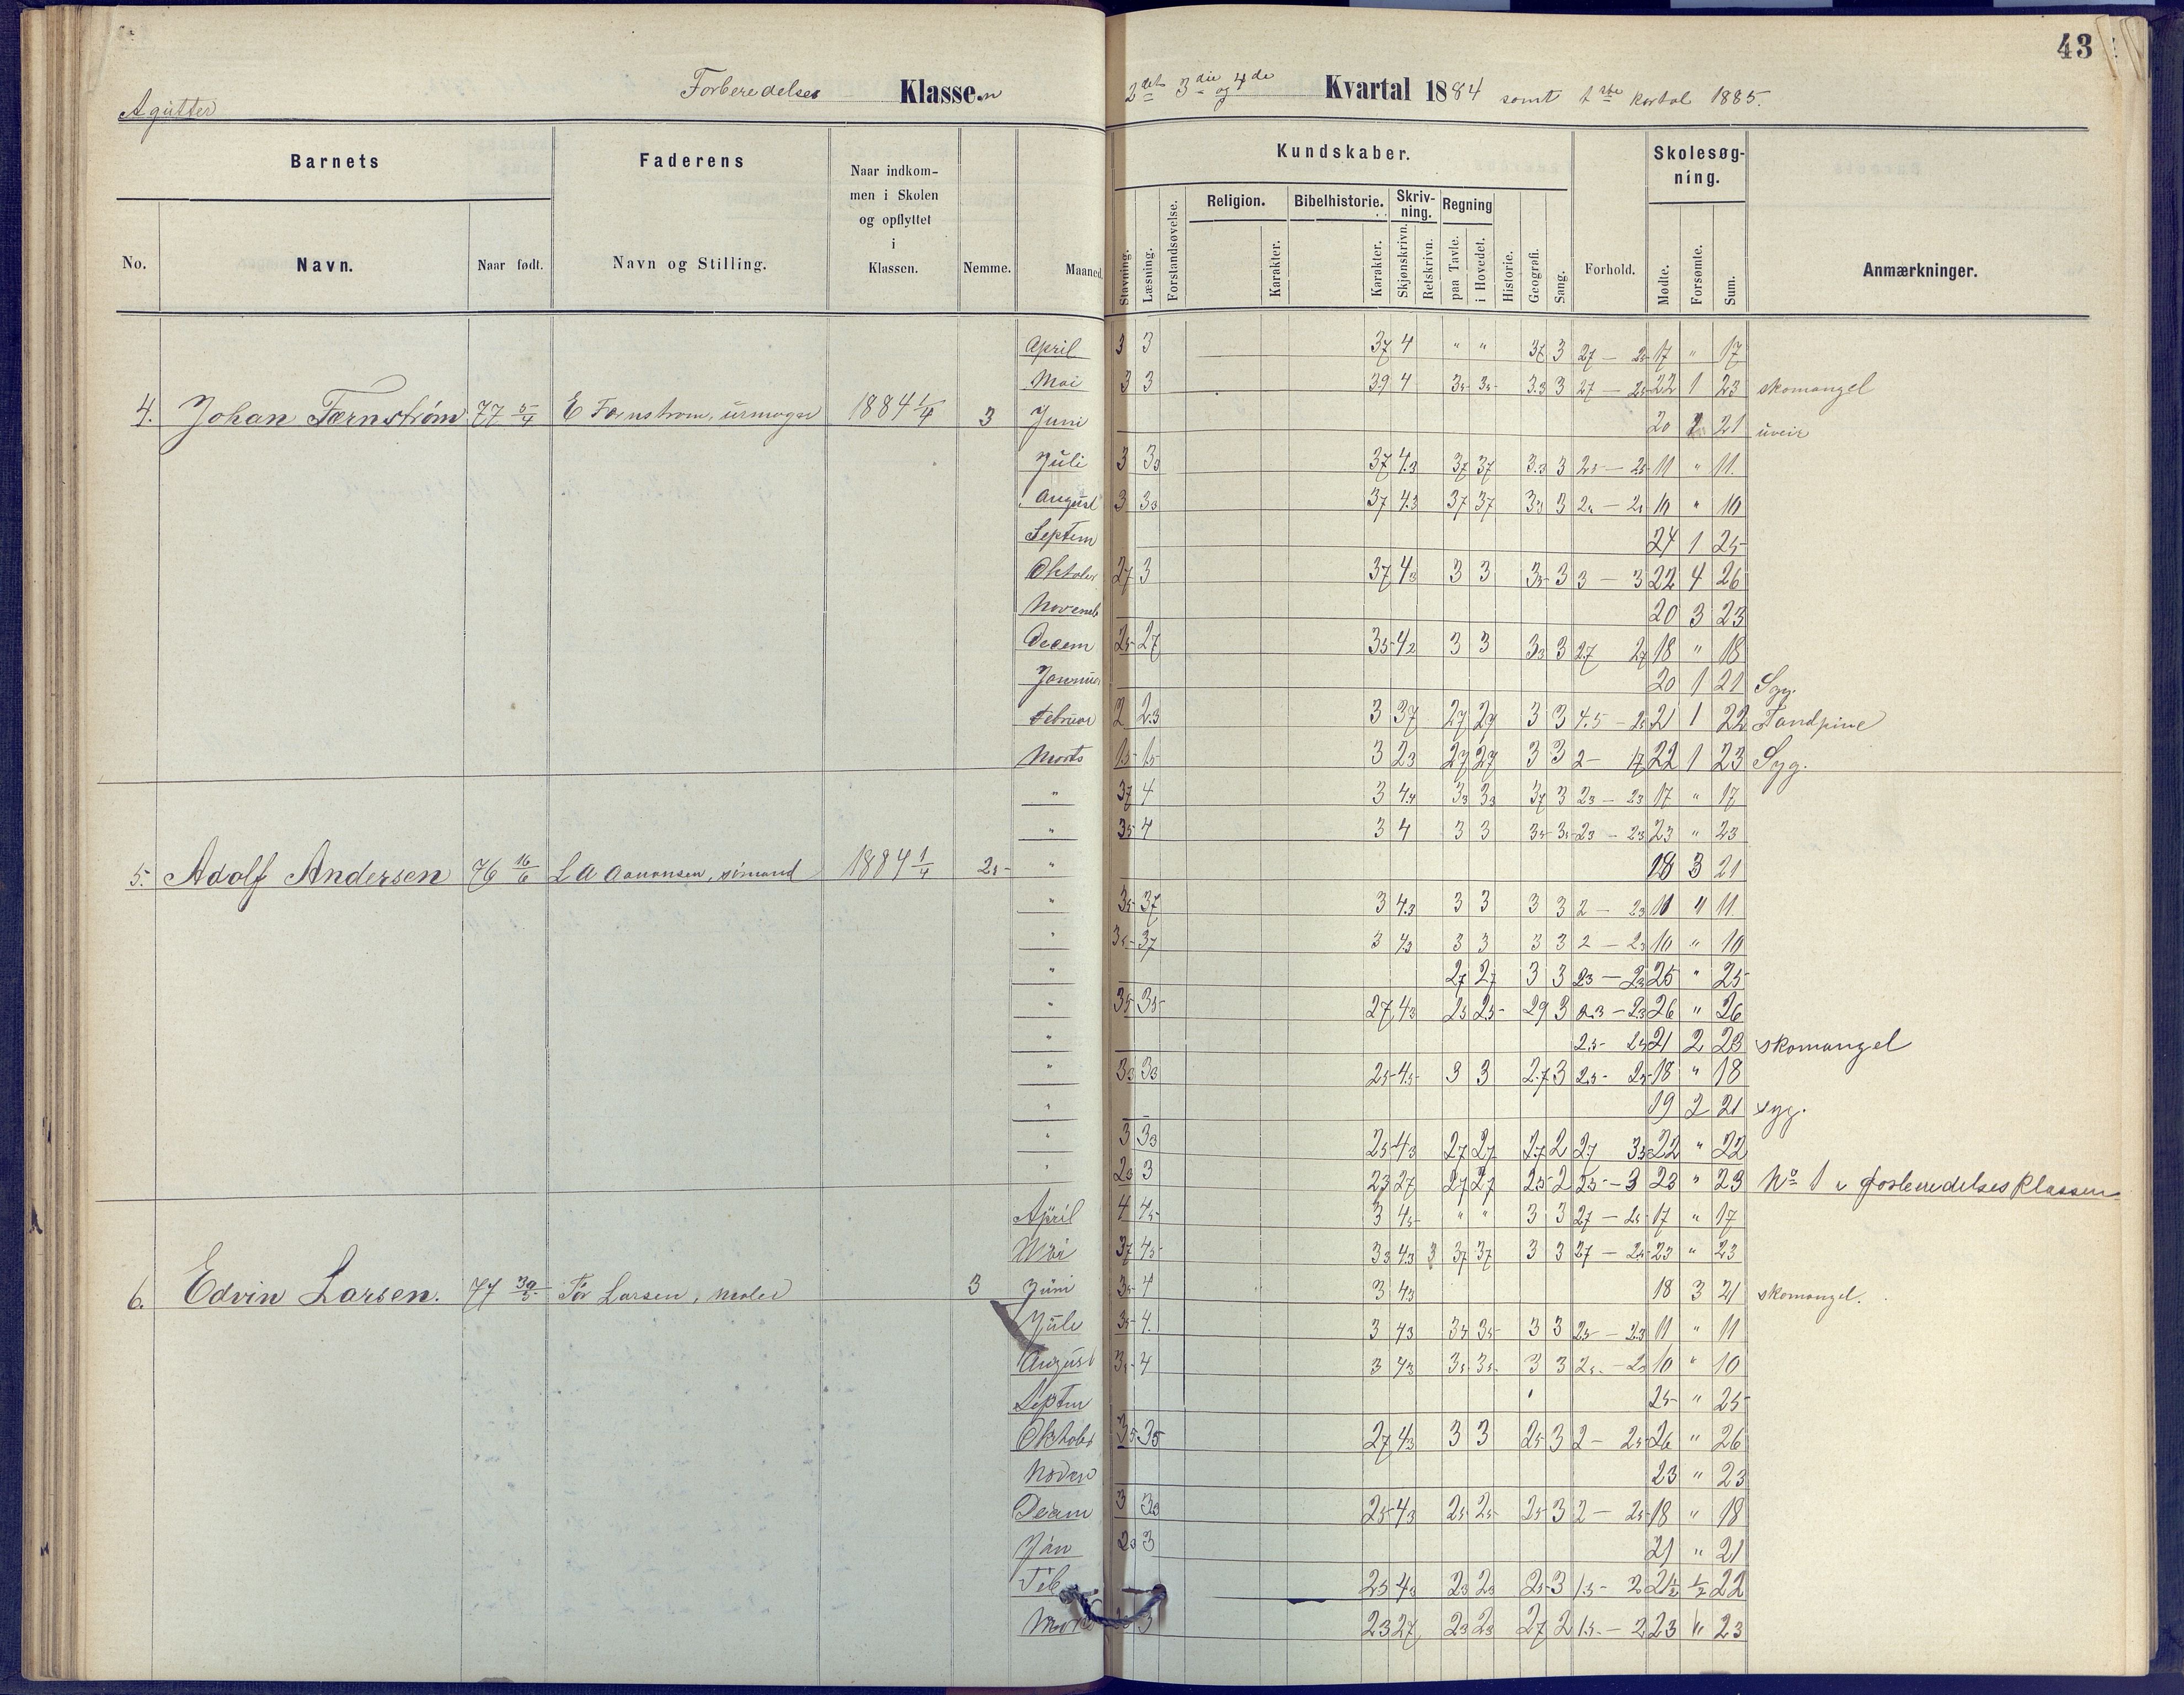 43
Agutter Forberedelses Klassen 2det 3die og 4de Kvartal 1884 samt 1ste kvartal 1885.
Barnets Faderens Naar indkommen i Skolen og opflyttet i Klassen. Nemme. Maaned. Kundskaber. Forhold. Skolesøgning. Anmærkninger.
No. Navn. Naar født. Navn og Stilling.
Stavning. Læsning. Forstandsøvelse. Religion. Karakter. Bibelhistorie. Karakter. Skrivning. Skjønskrivn. Retskrivn. Regning paa Tavle. i Hovedet. Historie. Geografi. Sang. Mødte. Forsømte. Sum.
April 3 3 37 4 " " 37 3 27 — 25 17 " 17
Mai 3 3 39 4 35 35 3.3 3 27 — 25 22 1 23 skomangel
4. Johan Færnstrøm 77 5/4 E Færnstrøm, urmager 1884 1/4 3 Juni 20 1 21 uveir
Juli 3 33 37 4.3 37 37 3.3 3 25 — 25 11 " 11.
August 3 33 37 4.3 37 37 33 3 10 " 10
Septem 24 1 25
Oktober 27 3 37 43 3 3 35 3 3 — 3 22 4 26
Novemb 20 3 23
Decem 25 27 35 42 3 3 33 3 27 27 18 " 18
Januar 20 1 21 Syg.
Februar 2 2.3 3 37 27 27 3 3 21 1 22 Tandpine
Marts 15 15 3 23 27 27 3 3 2 — 17 22 1 23 Syg.
" 37 4 3 4.4 33 33 37 3 23 — 23 17 " 17
" 35 4 3 4 3 3 35 35 23 — 23 23 " 23
5. Adolf Andersen 76 16/6 L A Aanonsen, sømand 1884 1/4 25 " 18 3 21
" 35 37 3 4.3 3 3 3 3 2 — 23 11 " 11.
" 35 37 3 43 3 3 3 3 2 — 23 10 " 10
" 27 27 3 3 23 — 23 25 " 25
" 35 35 27 43 25 25 29 3 2.3 — 23 26 " 26
" 2.5 25 21 2 23 skomangel
" 33 33 25 45 3 3 2.7 3 2.5 25 18 " 18
" 19 2 21 syg.
" 3 33 25 43 27 27 27 2 27 35 22 " 22
" 23 3 23 27 27 27 25 2 25 — 3 23 " 23 No 1 i forberedelsesklassen
April 4 45 3 45 " " 3 3 27 — 25 17 " 17
Mai 37 45 33 43 3 37 37 3 3 27 — 25 23 " 23
6. Edvin Larsen. 77 30/5 Tor Larsen, maler 3 Juni 35 4 3 43 18 3 21 skomangel.
Juli 35 4. 3 43 35 35 3 3 25 — 23 11 " 11
August 35 4 3 43 35 35 3 3 25 — 23 10 " 10
Septem 25 " 25
Oktober 35 35 27 43 3 3 25 3 2 — 25 26 " 26
Novem 23 " 23
Decem 3 33 25 43 25 25 25 3 2 — 25 18 " 18
Jan 23 3 21 " 21
Feb 25 43 23 23 25 3 1.5 — 2 21½ ½ 22
Marts 3 23 27 23 23 27 2 1.5 — 2 23 " 23